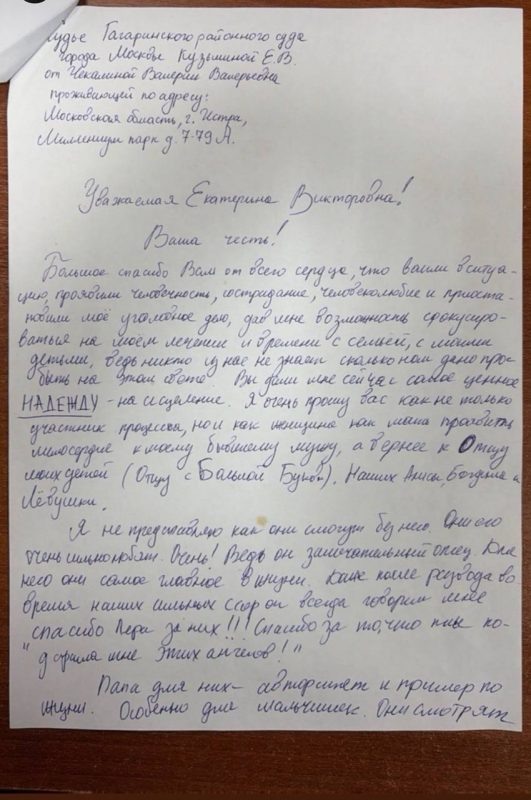 Судье Гагаринского районного суда
города Москвы Кузьминой Е.В.
от Чекалиной Валерии Валерьевны
проживающей по адресу:
Московская область, г. Истра,
Миллениум парк д. 7-79 А.
Уважаемая Екатерина Викторовна!
Ваша честь!
Большое спасибо Вам от всего сердца, что вошли в ситуа-
цию, проявили человечность, сострадание, человеколюбие и приоста-
новили моё уголовное дело, дав мне возможность сфокусиро-
ваться на моем лечении и времени с семьей, с моими
детьми, ведь никто из нас не знает сколько нам дано про-
быть на этом свете. Вы дали мне сейчас самое ценное
НАДЕЖДУ - на исцеление. Я очень прошу вас как не только
участник процесса, но и как женщина как мама проявить
милосердие к моему бывшему мужу, а вернее к Отцу
моих детей (Отцу с Большой Буквы). Наших Алисы, Богдана и
Лёвушки.
Я не представляю как они смогут без него. Они его
очень сильно любят. Очень! Ведь он замечательный отец Для
него они самое главное в жизни. Даже после развода во
время наших сильных ссор он всегда говорил мне
спасибо Лера за них!!! Спасибо за то, что ты по-
"дарила мне этих ангелов!"
Папа для них - авторитет и пример по
жизни. Особенно для мальчишек. Они смотрят